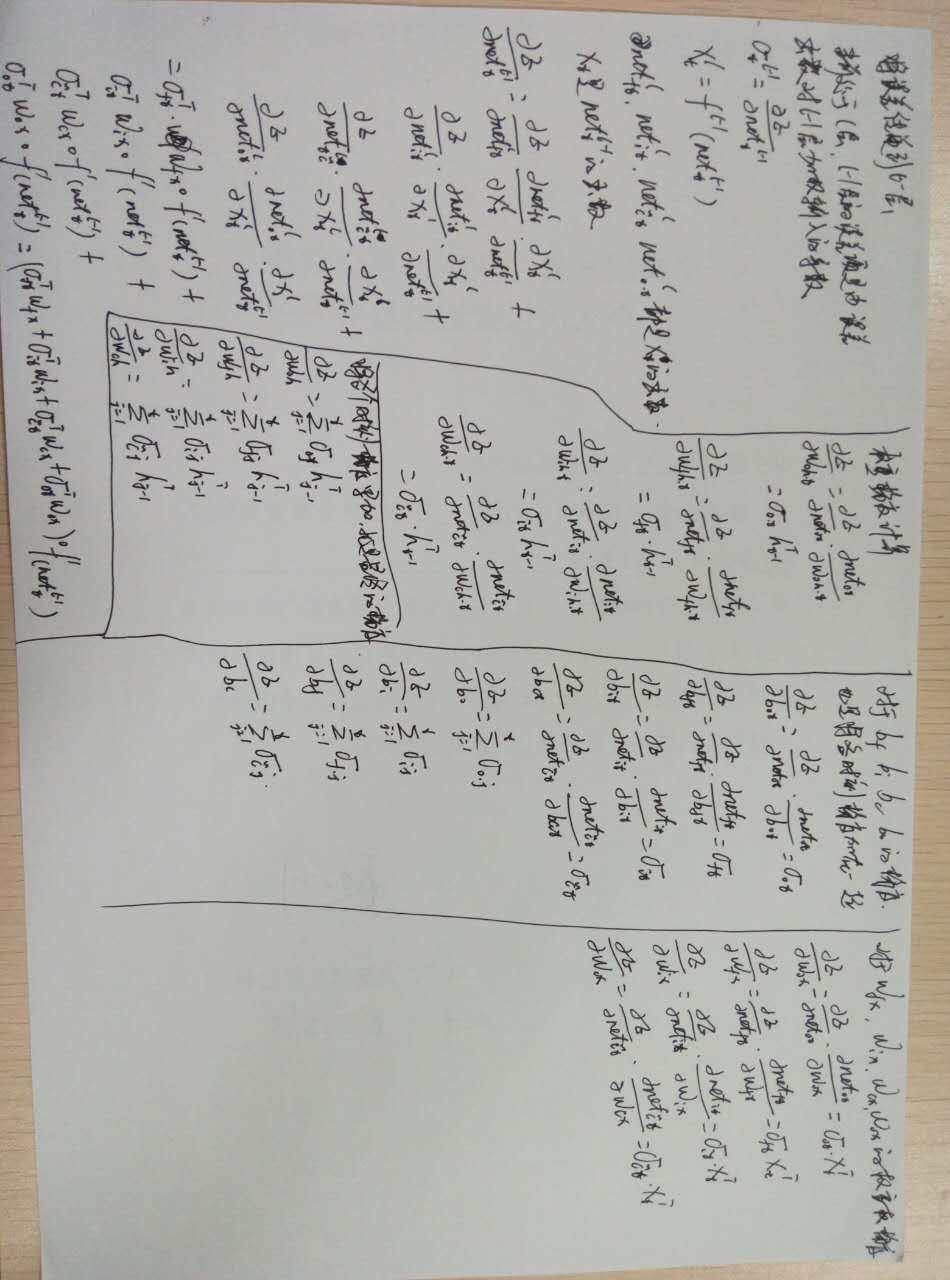 将误差传递到l-1层,
当前处于l层, l-1层的误差项是由误差
函数对l-1层加权输入的导数
σ_t^{l-1} = ∂E/∂net_t^{l-1}
X_t^l = f^{l-1}(net_t^{l-1})
net_{ft}^l, net_{it}^l, net_{c̃t}^l, net_{o,t}^l 都是X_t的函数.
X_t是net_t^{l-1}的函数
∂E/∂net_t^{l-1} = ∂E/∂net_{ft}^l ∂net_{ft}^l/∂X_t^l · ∂X_t^l/∂net_t^{l-1} +
∂E/∂net_{it}^l · ∂net_{it}^l/∂X_t^l · ∂X_t^l/∂net_t^{l-1} +
∂E/∂net_{c̃t}^l · ∂net_{c̃t}^l/∂X_t^l · ∂X_t^l/∂net_t^{l-1} +
∂E/∂net_{ot}^l · ∂net_{ot}^l/∂X_t^l · ∂X^l/∂net_t^{l-1}
= σ_{ft}^T · W_{fx} ∘ f'(net_t^{l-1}) +
σ_{it}^T W_{ix} ∘ f'(net_t^{l-1}) +
σ_{c̃t}^T W_{cx} ∘ f'(net_t^{l-1}) +
σ_{ot}^T W_{ox} ∘ f'(net_t^{l-1}) = (σ_{ft}^T W_{fx} + σ_{it}^T W_{ix} + σ_{c̃t}^T W_{cx} + σ_{ot}^T W_{ox}) ∘ f'(net_t^{l-1})
权重梯度计算
∂E/∂W_{oh.t} = ∂E/∂net_{ot} · ∂net_{ot}/∂W_{oh.t}
= σ_{ot} h_{t-1}^T
∂E/∂W_{fh.t} = ∂E/∂net_{ft} · ∂net_{ft}/∂W_{fh.t}
= σ_{ft} · h_{t-1}^T
∂E/∂W_{ih.t} = ∂E/∂net_{it} · ∂net_{it}/∂W_{ih.t}
= σ_{it} h_{t-1}^T
∂E/∂W_{ch.t} = ∂E/∂net_{c̃t} · ∂net_{c̃t}/∂W_{ch.t}
= σ_{c̃t} · h_{t-1}^T
将各个时刻梯度累加, 就是最终的梯度
∂E/∂W_{oh} = Σ_{j=1}^t σ_{oj} h_{j-1}^T
∂E/∂W_{fh} = Σ_{j=1}^t σ_{fj} h_{j-1}^T
∂E/∂W_{ih} = Σ_{j=1}^t σ_{ij} h_{j-1}^T
∂E/∂W_{ch} = Σ_{j=1}^t σ_{c̃j} h_{j-1}^T
对于 b_f b_i b_c b_o 的梯度.
也是将各时刻梯度加在一起
∂E/∂b_{ot} = ∂E/∂net_{ot} · ∂net_{ot}/∂b_{ot} = σ_{ot}
∂E/∂b_{ft} = ∂E/∂net_{ft} · ∂net_{ft}/∂b_{ft} = σ_{ft}
∂E/∂b_{it} = ∂E/∂net_{it} · ∂net_{it}/∂b_{it} = σ_{it}
∂E/∂b_{ct} = ∂E/∂net_{c̃t} · ∂net_{c̃t}/∂b_{ct} = σ_{c̃t}
∂E/∂b_o = Σ_{j=1}^t σ_{o.j}
∂E/∂b_i = Σ_{j=1}^t σ_{ij}
∂E/∂b_f = Σ_{j=1}^t σ_{f.j}
∂E/∂b_c = Σ_{j=1}^t σ_{c̃j}.
对于 W_{fx}, W_{ix}, W_{cx}, W_{ox} 的权重梯度
∂E/∂W_{ox} = ∂E/∂net_{ot} · ∂net_{ot}/∂W_{ox} = σ_{ot} · X_t^T
∂E/∂W_{fx} = ∂E/∂net_{ft} · ∂net_{ft}/∂W_{fx} = σ_{ft} X_t^T
∂E/∂W_{ix} = ∂E/∂net_{it} · ∂net_{it}/∂W_{ix} = σ_{it} · X_t^T
∂E/∂W_{cx} = ∂E/∂net_{c̃t} · ∂net_{c̃t}/∂W_{cx} = σ_{c̃t} · X_t^T